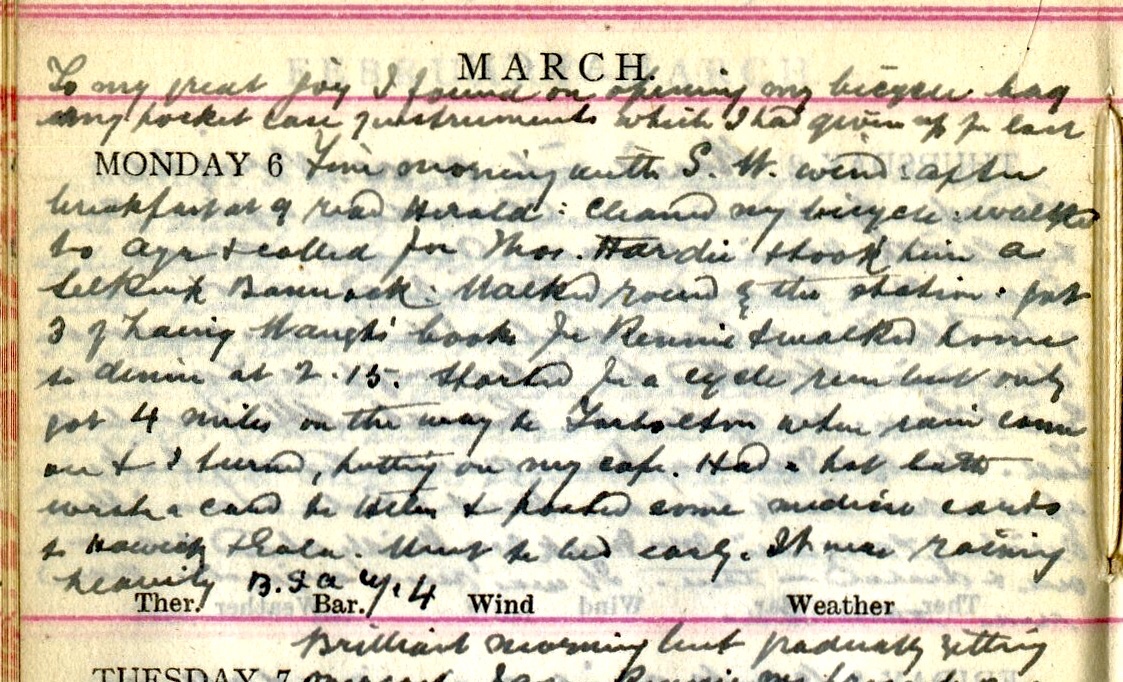 MARCH.
To my great joy I found on opening my bicycle bag
my pocket case of instruments which I had given up for lost
MONDAY 6 Fine morning with S. W. wind: after
breakfast at 9 read Herald: cleaned my bicycle: walked
to Ayr & called for Thos. Hardie & took him a
Selkirk Bannock. Walked round to the station: got
3 of Laing Waugh's books for Rennie & walked home
to dinner at 2.15. Started for a cycle run but only
got 4 miles on the way to Tarbolton when rain came
on & I turned, putting on my cape. Had a hot bath
wrote a card to & posted some cards
to Hawick & Gala. Went to bed early. It was raining
heavily
Ther. Bar. Wind Weather
Brilliant morning but gradually getting
TUESDAY 7 Rennie